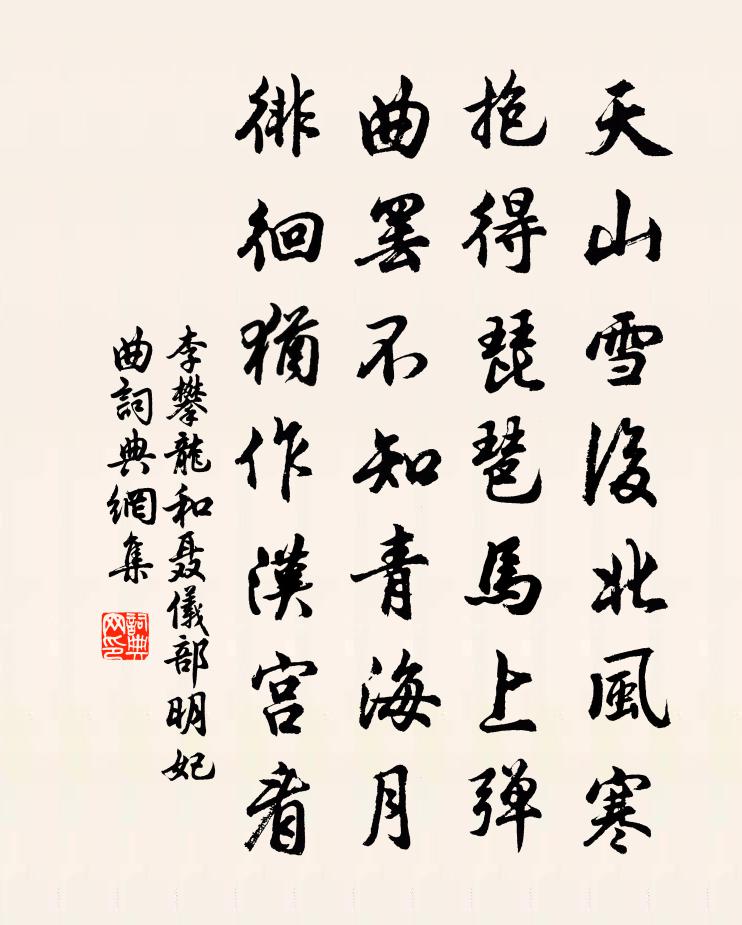 天山雪後北風寒
抱得琵琶馬上彈
曲罷不知青海月
徘徊猶作漢宮看
李攀龍和聶儀部明妃
曲詞典網集
詞典网印